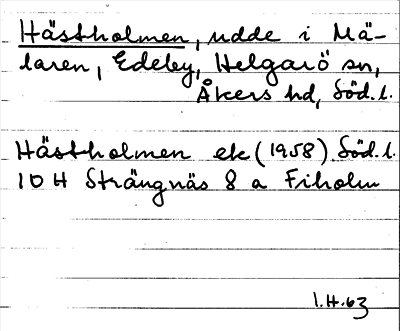 Hästholmen, udde i Mä-
laren, Edeby, Helgarö sn,
Åkers hd, Söd.l.
Hästholmen ek (1958) Söd.l.
10 H Strängnäs 8 a Fiholm
1.H.63